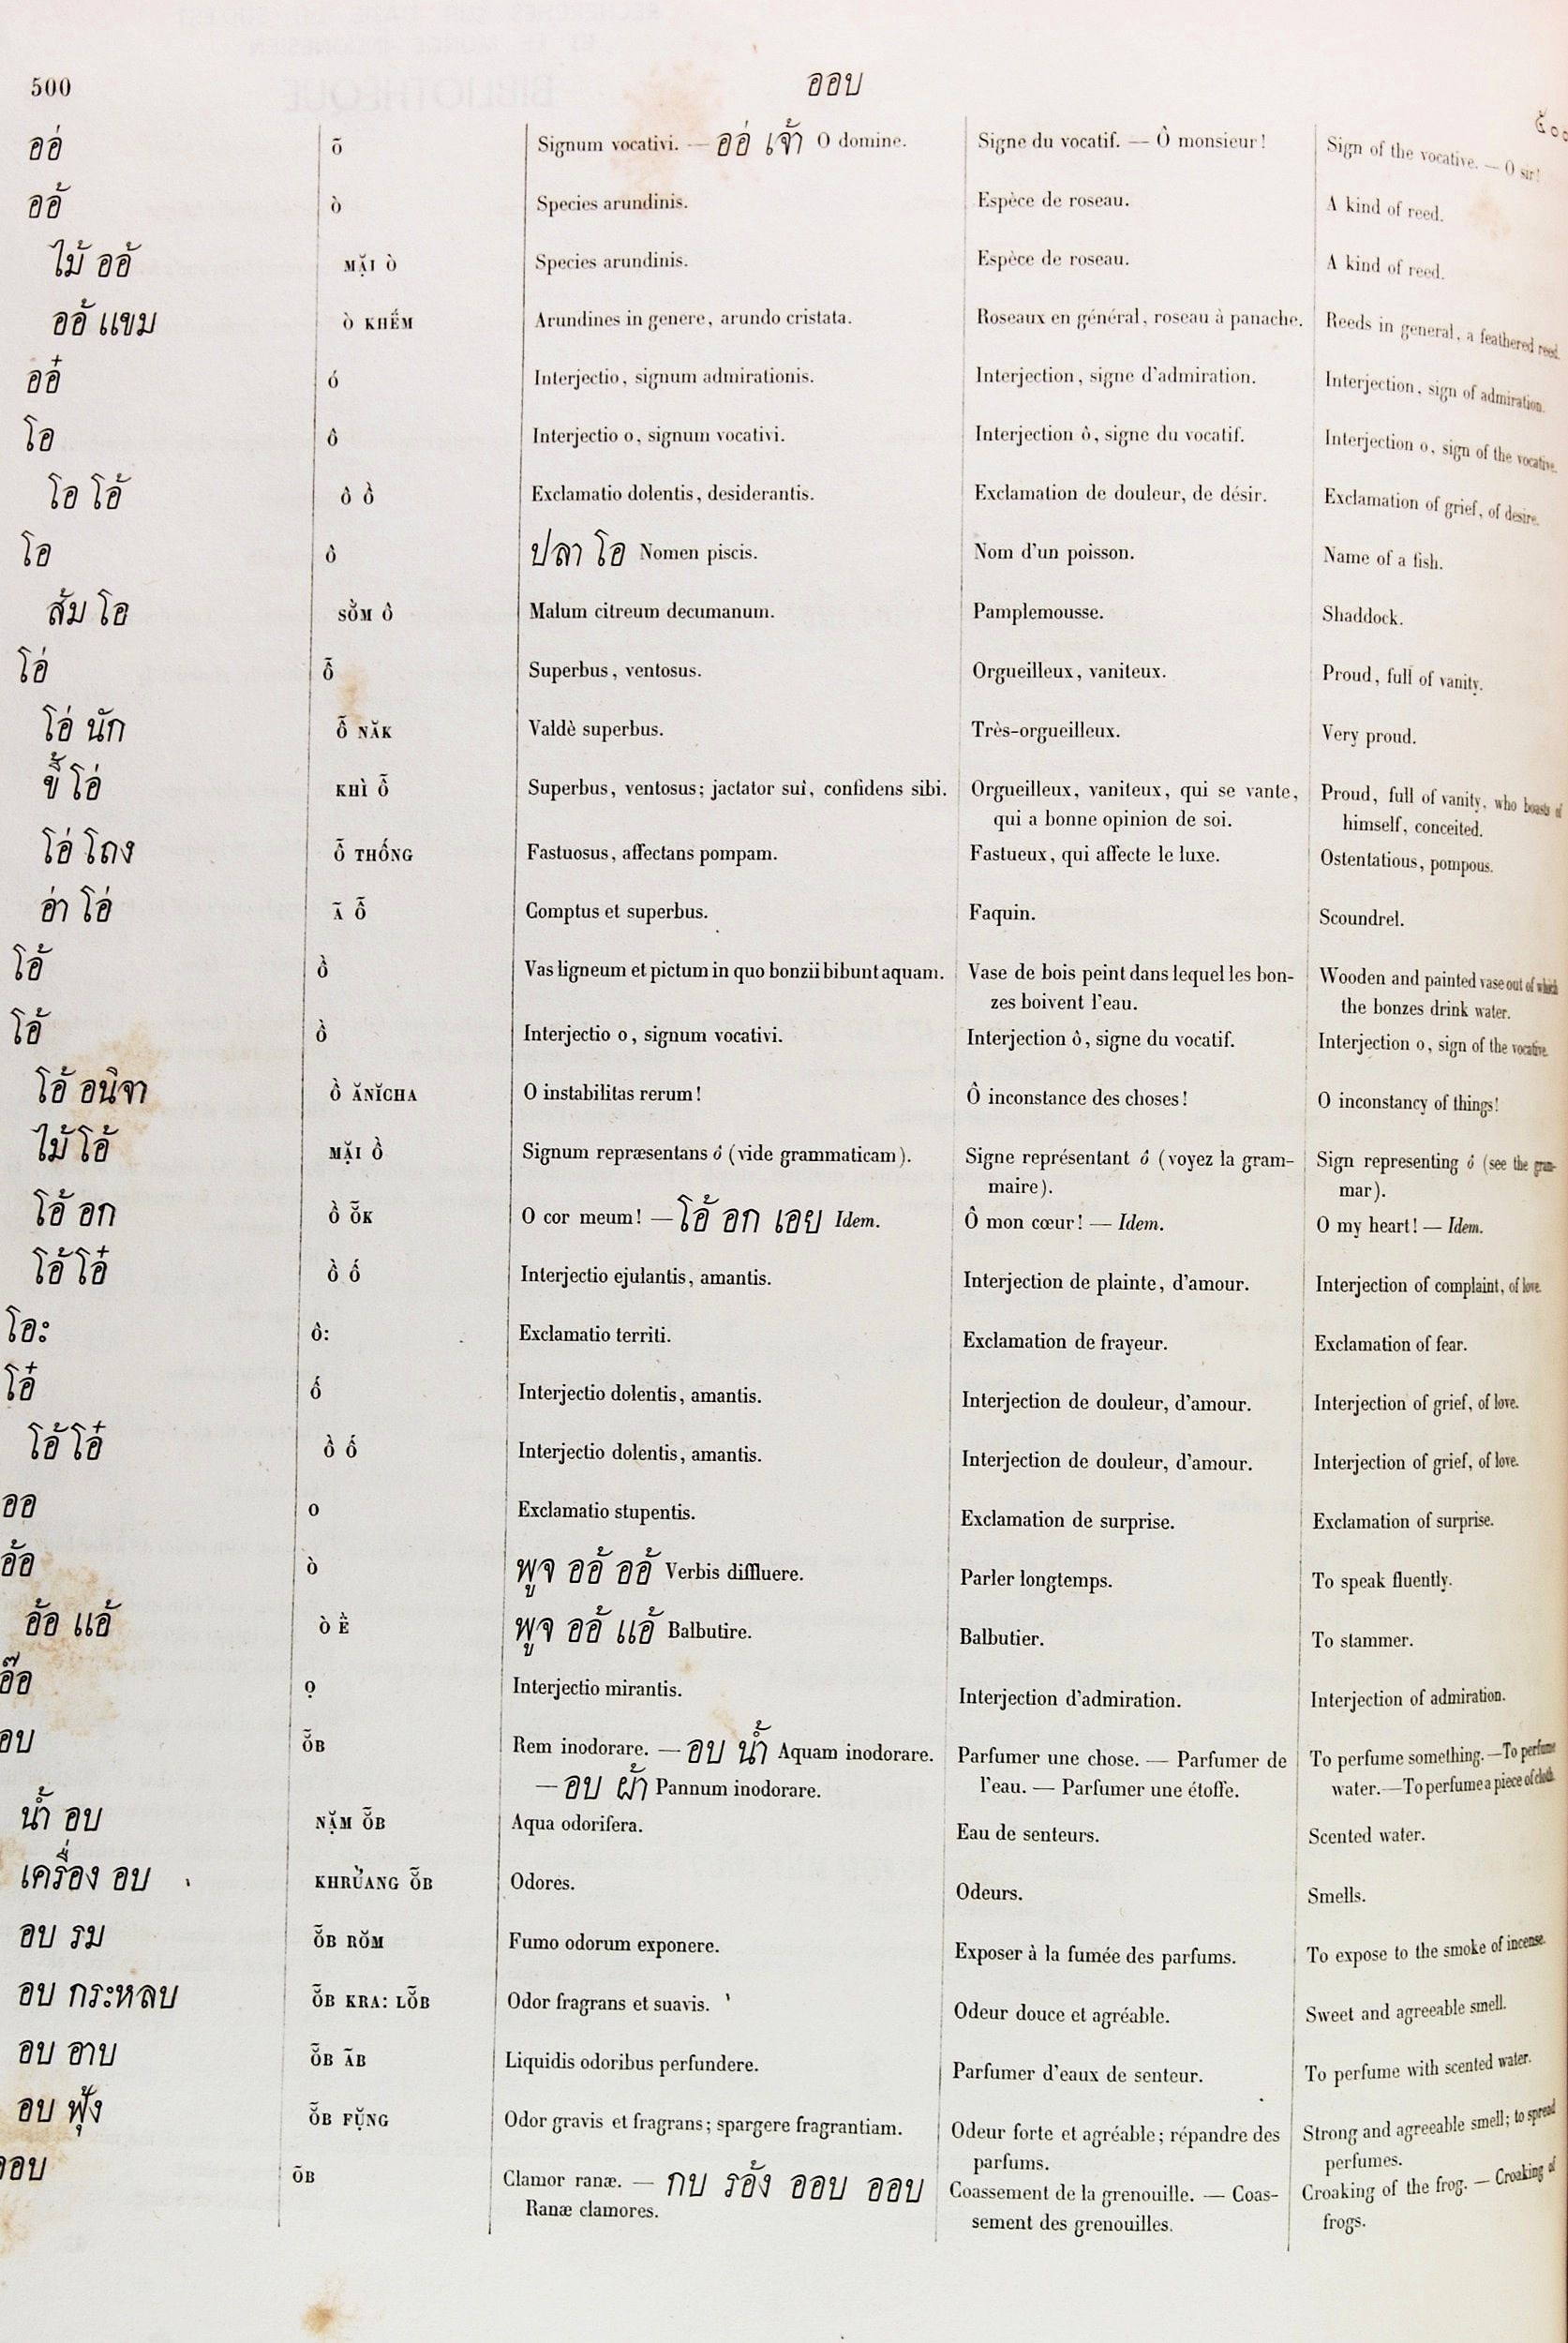 500 ออบ ๕๐๐
ออ่ õ Signum vocativi. — ออ่ เจ้า O domine. Signe du vocatif. — Ô monsieur! Sign of the vocative. — O sir!
ออ้ ò Species arundinis. Espèce de roseau. A kind of reed.
ไม้ ออ้ MẶI Ò Species arundinis. Espèce de roseau. A kind of reed.
ออ้ แขม Ò KHẾM Arundines in genere, arundo cristata. Roseaux en général, roseau à panache. Reeds in general, a feathered reed.
ออ๋ ó Interjectio, signum admirationis. Interjection, signe d'admiration. Interjection, sign of admiration.
โอ ô Interjectio o, signum vocativi. Interjection ô, signe du vocatif. Interjection o, sign of the vocative.
โอ โอ้ ô ồ Exclamatio dolentis, desiderantis. Exclamation de douleur, de désir. Exclamation of grief, of desire.
โอ ô ปลา โอ Nomen piscis. Nom d'un poisson. Name of a fish.
ส้ม โอ SỒM Ô Malum citreum decumanum. Pamplemousse. Shaddock.
โอ่ ỗ Superbus, ventosus. Orgueilleux, vaniteux. Proud, full of vanity.
โอ่ นัก Ỗ NĂK Valdè superbus. Très-orgueilleux. Very proud.
ขี้ โอ่ KHÌ Ỗ Superbus, ventosus; jactator suî, confidens sibi. Orgueilleux, vaniteux, qui se vante, Proud, full of vanity, who boasts of
qui a bonne opinion de soi. himself, conceited.
โอ่ โถง Ỗ THỐNG Fastuosus, affectans pompam. Fastueux, qui affecte le luxe. Ostentatious, pompous.
อ่า โอ่ Ã Ỗ Comptus et superbus. Faquin. Scoundrel.
โอ้ ồ Vas ligneum et pictum in quo bonzii bibunt aquam. Vase de bois peint dans lequel les bon- Wooden and painted vase out of which
zes boivent l'eau. the bonzes drink water.
โอ้ ồ Interjectio o, signum vocativi. Interjection ô, signe du vocatif. Interjection o, sign of the vocative.
โอ้ อนิจา Ồ ĂNĬCHA O instabilitas rerum! Ô inconstance des choses! O inconstancy of things!
ไม้ โอ้ MẶI Ồ Signum repræsentans ô (vide grammaticam). Signe représentant ô (voyez la gram- Sign representing ô (see the gram-
maire). mar).
โอ้ อก Ồ ỖK O cor meum! — โอ้ อก เอย Idem. Ô mon cœur! — Idem. O my heart! — Idem.
โอ้ โอ๋ Ồ Ố Interjectio ejulantis, amantis. Interjection de plainte, d'amour. Interjection of complaint, of love.
โอะ ô: Exclamatio territi. Exclamation de frayeur. Exclamation of fear.
โอ๋ ố Interjectio dolentis, amantis. Interjection de douleur, d'amour. Interjection of grief, of love.
โอ้ โอ๋ ồ ố Interjectio dolentis, amantis. Interjection de douleur, d'amour. Interjection of grief, of love.
ออ o Exclamatio stupentis. Exclamation de surprise. Exclamation of surprise.
อ้อ ò พูจ ออ้ ออ้ Verbis diffluere. Parler longtemps. To speak fluently.
อ้อ แอ้ Ò Ề พูจ ออ้ แอ้ Balbutire. Balbutier. To stammer.
อ๊อ ọ Interjectio mirantis. Interjection d'admiration. Interjection of admiration.
อบ ỖB Rem inodorare. — อบ น้ำ Aquam inodorare. Parfumer une chose. — Parfumer de To perfume something. — To perfume
— อบ ผ้า Pannum inodorare. l'eau. — Parfumer une étoffe. water. — To perfume a piece of cloth.
น้ำ อบ NẶM ỖB Aqua odorifera. Eau de senteurs. Scented water.
เครื่อง อบ KHRỪANG ỖB Odores. Odeurs. Smells.
อบ รม ỖB RŎM Fumo odorum exponere. Exposer à la fumée des parfums. To expose to the smoke of incense.
อบ กระหลบ ỖB KRA: LỖB Odor fragrans et suavis. Odeur douce et agréable. Sweet and agreeable smell.
อบ อาบ ỖB ÃB Liquidis odoribus perfundere. Parfumer d'eaux de senteur. To perfume with scented water.
อบ ฟุ้ง ỖB FỤ̆NG Odor gravis et fragrans; spargere fragrantiam. Odeur forte et agréable; répandre des Strong and agreeable smell; to spread
parfums. perfumes.
ออบ ÕB Clamor ranæ. — กบ รอ้ง ออบ ออบ Coassement de la grenouille. — Coas- Croaking of the frog. — Croaking of
Ranæ clamores. sement des grenouilles. frogs.